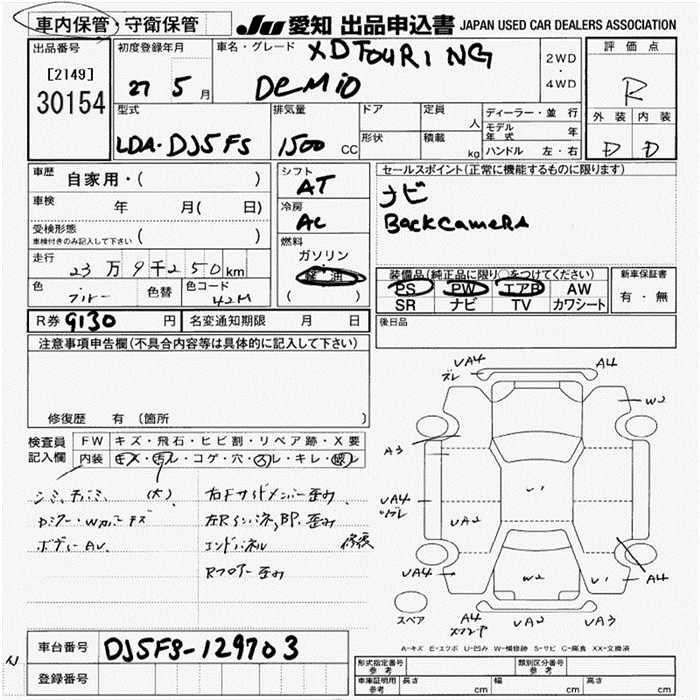 車内保管・守衛保管
JU 愛知 出品申込書 JAPAN USED CAR DEALERS ASSOCIATION
出品番号
[2149]
30154
初度登録年月
27 5 月
車名・グレード XD TOURING
DEMIO
2WD
・
4WD
評価点
R
外装 内装
D D
型式
LDA-DJ5FS
排気量
1500 CC
ドア
形状
定員 人
積載 kg
ディーラー・並行
モデル年式 年
ハンドル 左・右
車歴 自家用・( )
車検 年 月( 日)
受検形態
車検付きのみ記入して下さい ( )
走行
23万9千250km
色 ブルー 色替 色コード 42M
シフト
AT
冷房
AC
燃料
ガソリン
軽油
( )
セールスポイント(正常に機能するものに限ります)
ナビ
Back camera
装備品(純正品に限り○をつけてください)
PS PW エアB AW
SR ナビ TV カワシート
新車保証書
有・無
R券 9130 円 名変通知期限 月 日
後日品
注意事項申告欄(不具合内容等は具体的に記入して下さい)
修復歴 有(箇所 )
検査員記入欄
FW キズ・飛石・ヒビ割・リペア跡・X要
内装 キズ・汚ル・コゲ・穴・スレ・キレ・破レ
シミ、チバミ、(大)
Dミラー・Wカバーキズ
ボディーAV.
右Fサイドメンバー歪み
エンドパネル 修復
Rフロアー歪み
UA4
ズレ
A4
W2
A3
UA4
U1
UA2
UA4
W2
U1
A4
スペア
A4
UA2
UA3
A-キズ E-エクボ U-凹み W-補修跡 S-サビ C-腐食 XX-交換済
車台番号 DJ5FS-129703
登録番号
形式指定番号
参考
類別区分番号
参考
車庫証明用
参考
長さ cm 幅 cm 高さ cm